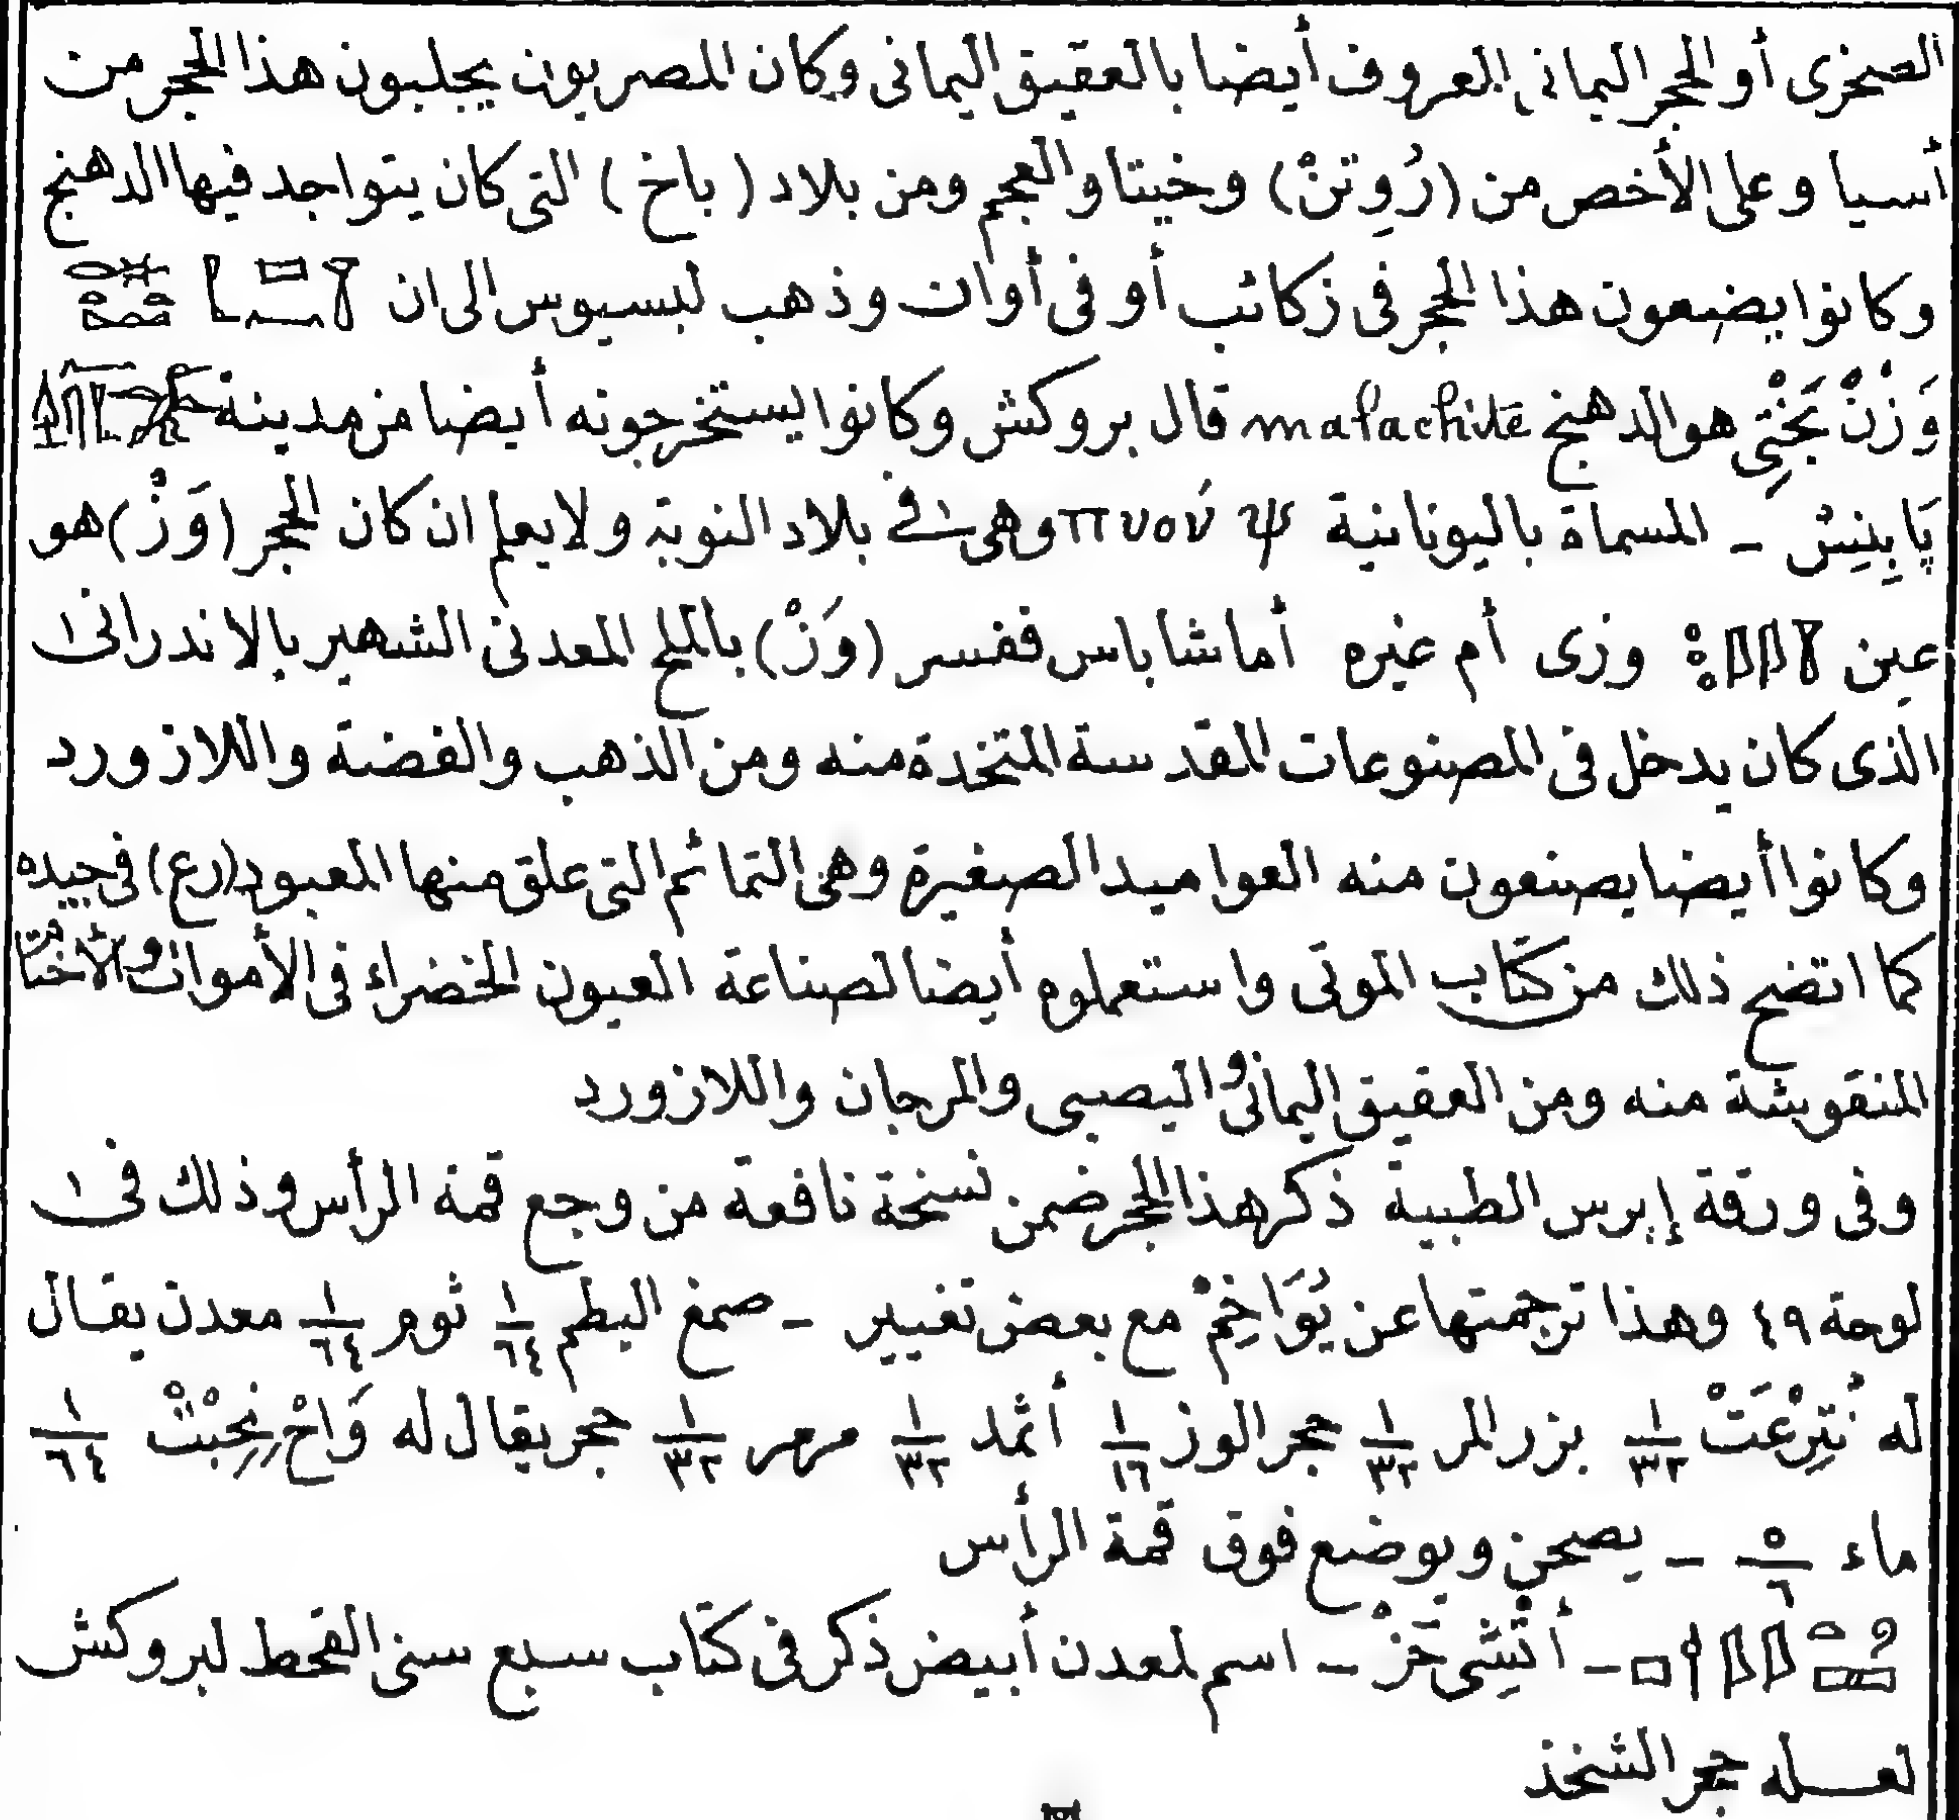 الصخرى أو الحجر اليمانى المعروف أيضا بالعقيق اليمانى وكان المصريون يجلبون هذا الحجر من
أسيا وعلى الأخص من (رُوِتنْ) وخيتا والعجم ومن بلاد (باخ) التى كان يتواجد فيها الدهنج
وكانوا يضعون هذا الحجر فى زكائب أو فى أوان وذهب لبسيوس الى ان
وَزْنْ بَخْتِى هو الدهنج malachite قال بروكش وكانوا يستخرجونه أيضا من مدينة
پَابِنِسْ - المسماة باليونانية ψ πνού وهى فى بلاد النوبة ولا يعلم ان كان الحجر (وَزْ) هو
عين وزى أم غيره أما شاباس ففسر (وَزْ) بالملح المعدنى الشهير بالاندرانى
الذى كان يدخل فى المصنوعات المقدسة المتخذة منه ومن الذهب والفضة واللازورد
وكانوا أيضا يصنعون منه العواميد الصغيرة وهى التمائم التى علق منها المعبود (رع) فى جيده
كما اتضح ذلك من كتاب الموتى واستعملوه أيضا لصناعة العيون الخضراء فى الأموات والأختام
المنقوشة منه ومن العقيق اليمانى واليصبى والمرجان واللازورد
وفى ورقة إبرس الطبية ذكر هذا الحجر ضمن نسخة نافعة من وجع قمة الرأس وذلك فى
لوحة ٤٩ وهذا ترجمتها عن يُوَاخِمْ مع بعض تغيير - صمغ البطم ١/٦٤ ثوم ١/٦٤ معدن يقال
له نُتِرْعَتْ ١/٣٢ بزر المر ١/٣٢ حجر الوز ١/١٦ أثمد ١/٣٢ مرمر ١/٣٢ حجر يقال له وَاحْ نِحِبْتْ ١/٦٤
ماء ٥/٦ - يصحن ويوضع فوق قمة الرأس
- أتْشِى حَزْ - اسم لمعدن أبيض ذكر فى كتاب سبع سنى القحط لبروكش
لعله حجر الشخذ